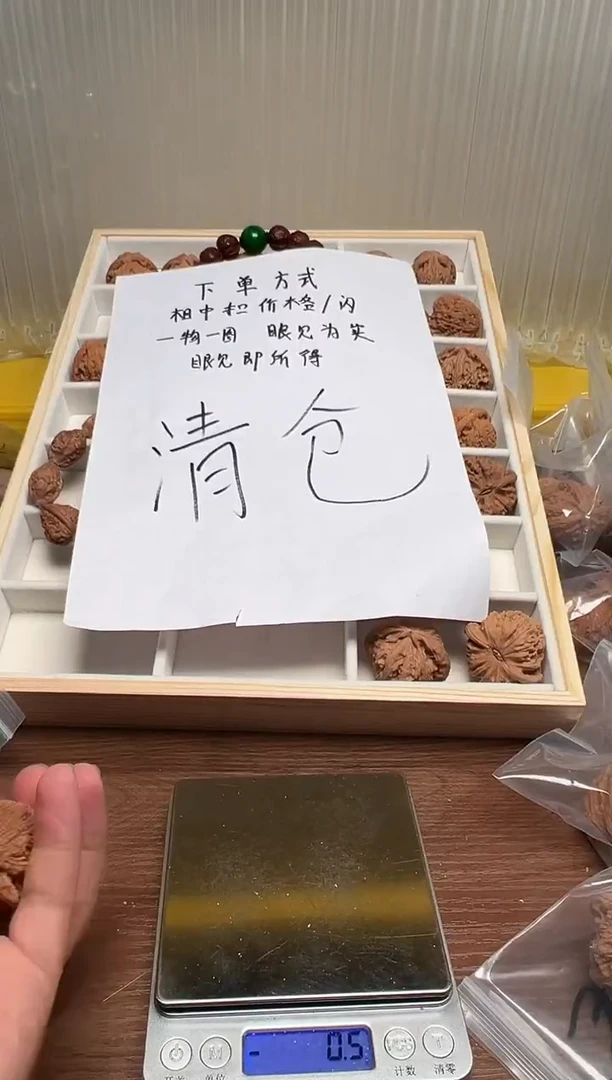 下单方式
相中扣价格/闪
一物一图 眼见为实
眼见即所得
清仓
- 0.5
PCS
计数 清零